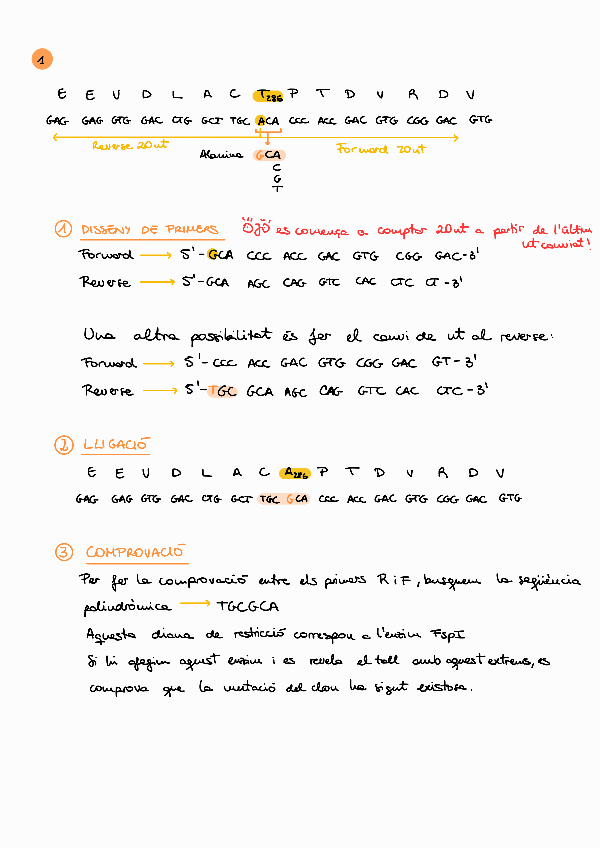 1
E E V D L A C T286 P T D V R D V
GAG GAG GTG GAC CTG GCT TGC ACA CCC ACC GAC GTG CGG GAC GTG
Reverse 20nt Forward 20nt
Alanina GCA
C
G
T
1 DISSENY DE PRIMERS OJO es comença a comptar 20nt a partir de l'últim
nt canviat!
Forward → 5'-GCA CCC ACC GAC GTG CGG GAC-3'
Reverse → 5'-GCA AGC CAG GTC CAC CTC CT-3'
Una altra possibilitat és fer el canvi de nt al reverse:
Forward → 5'-CCC ACC GAC GTG CGG GAC GT-3'
Reverse → 5'-TGC GCA AGC CAG GTC CAC CTC-3'
2 LLIGACIÓ
E E V D L A C A286 P T D V R D V
GAG GAG GTG GAC CTG GCT TGC GCA CCC ACC GAC GTG CGG GAC GTG
3 COMPROVACIÓ
Per fer la comprovació entre els primers R i F, busquem la seqüència
palindròmica → TGCGCA
Aquesta diana de restricció correspon a l'enzim FspI
Si hi afegim aquest enzim i es revela el tall amb aquest extrems, es
comprova que la mutació del clon ha sigut existosa.